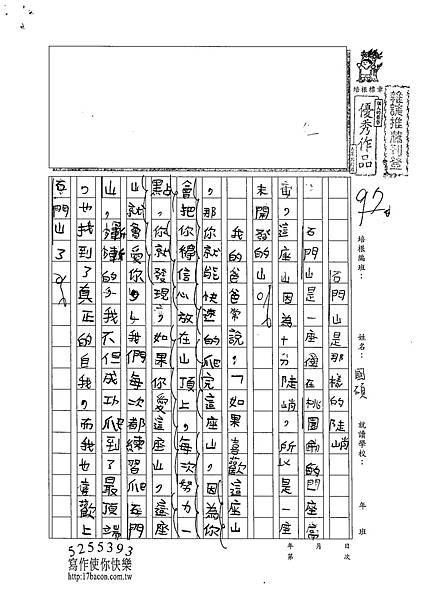 培根標章
個人的 
優秀作品
雜誌推薦刊登
92
培根編班：
姓名：國碩
就讀學校：
年 班
年 月 日
第 次
石門山是那樣的陡峭
石門山是一座僅在桃園的
山，這座山因為十分陡峭，所以是一座
未開發的山。
我的爸爸常說：「如果喜歡這座山
，那你就能快速的爬完這座山，因為你
會把你得信心放在山頂上，每次努力一
點，你就發現，如果你愛這座山，
山就會愛你」我們每次都練習爬石門
山，漸漸的，我不但成功爬到了最頂端
，也找到了真正的自我，而我也喜歡上
石門山了。
5255393
寫作使你快樂
http://17bacon.com.tw